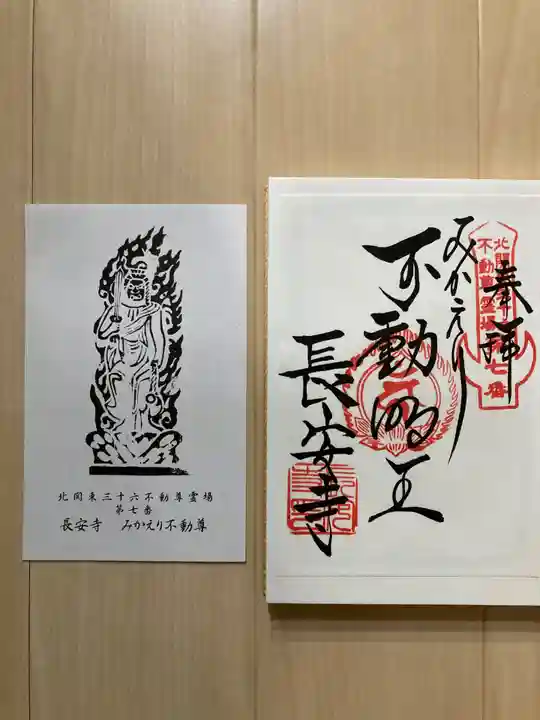 北関東三十六不動尊霊場
第七番
長安寺 みかえり不動尊
奉拝
北関東
不動尊霊場第七番
みかえり
不動明王
長安寺